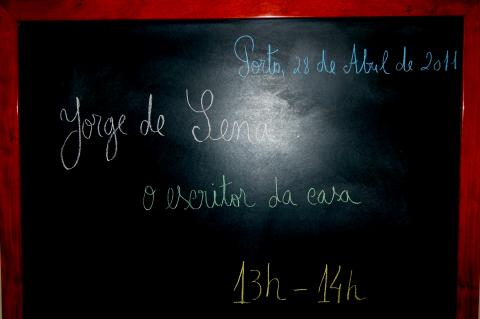 Porto, 28 de Abril de 2011
Jorge de Sena
o escritor da casa
13h - 14h